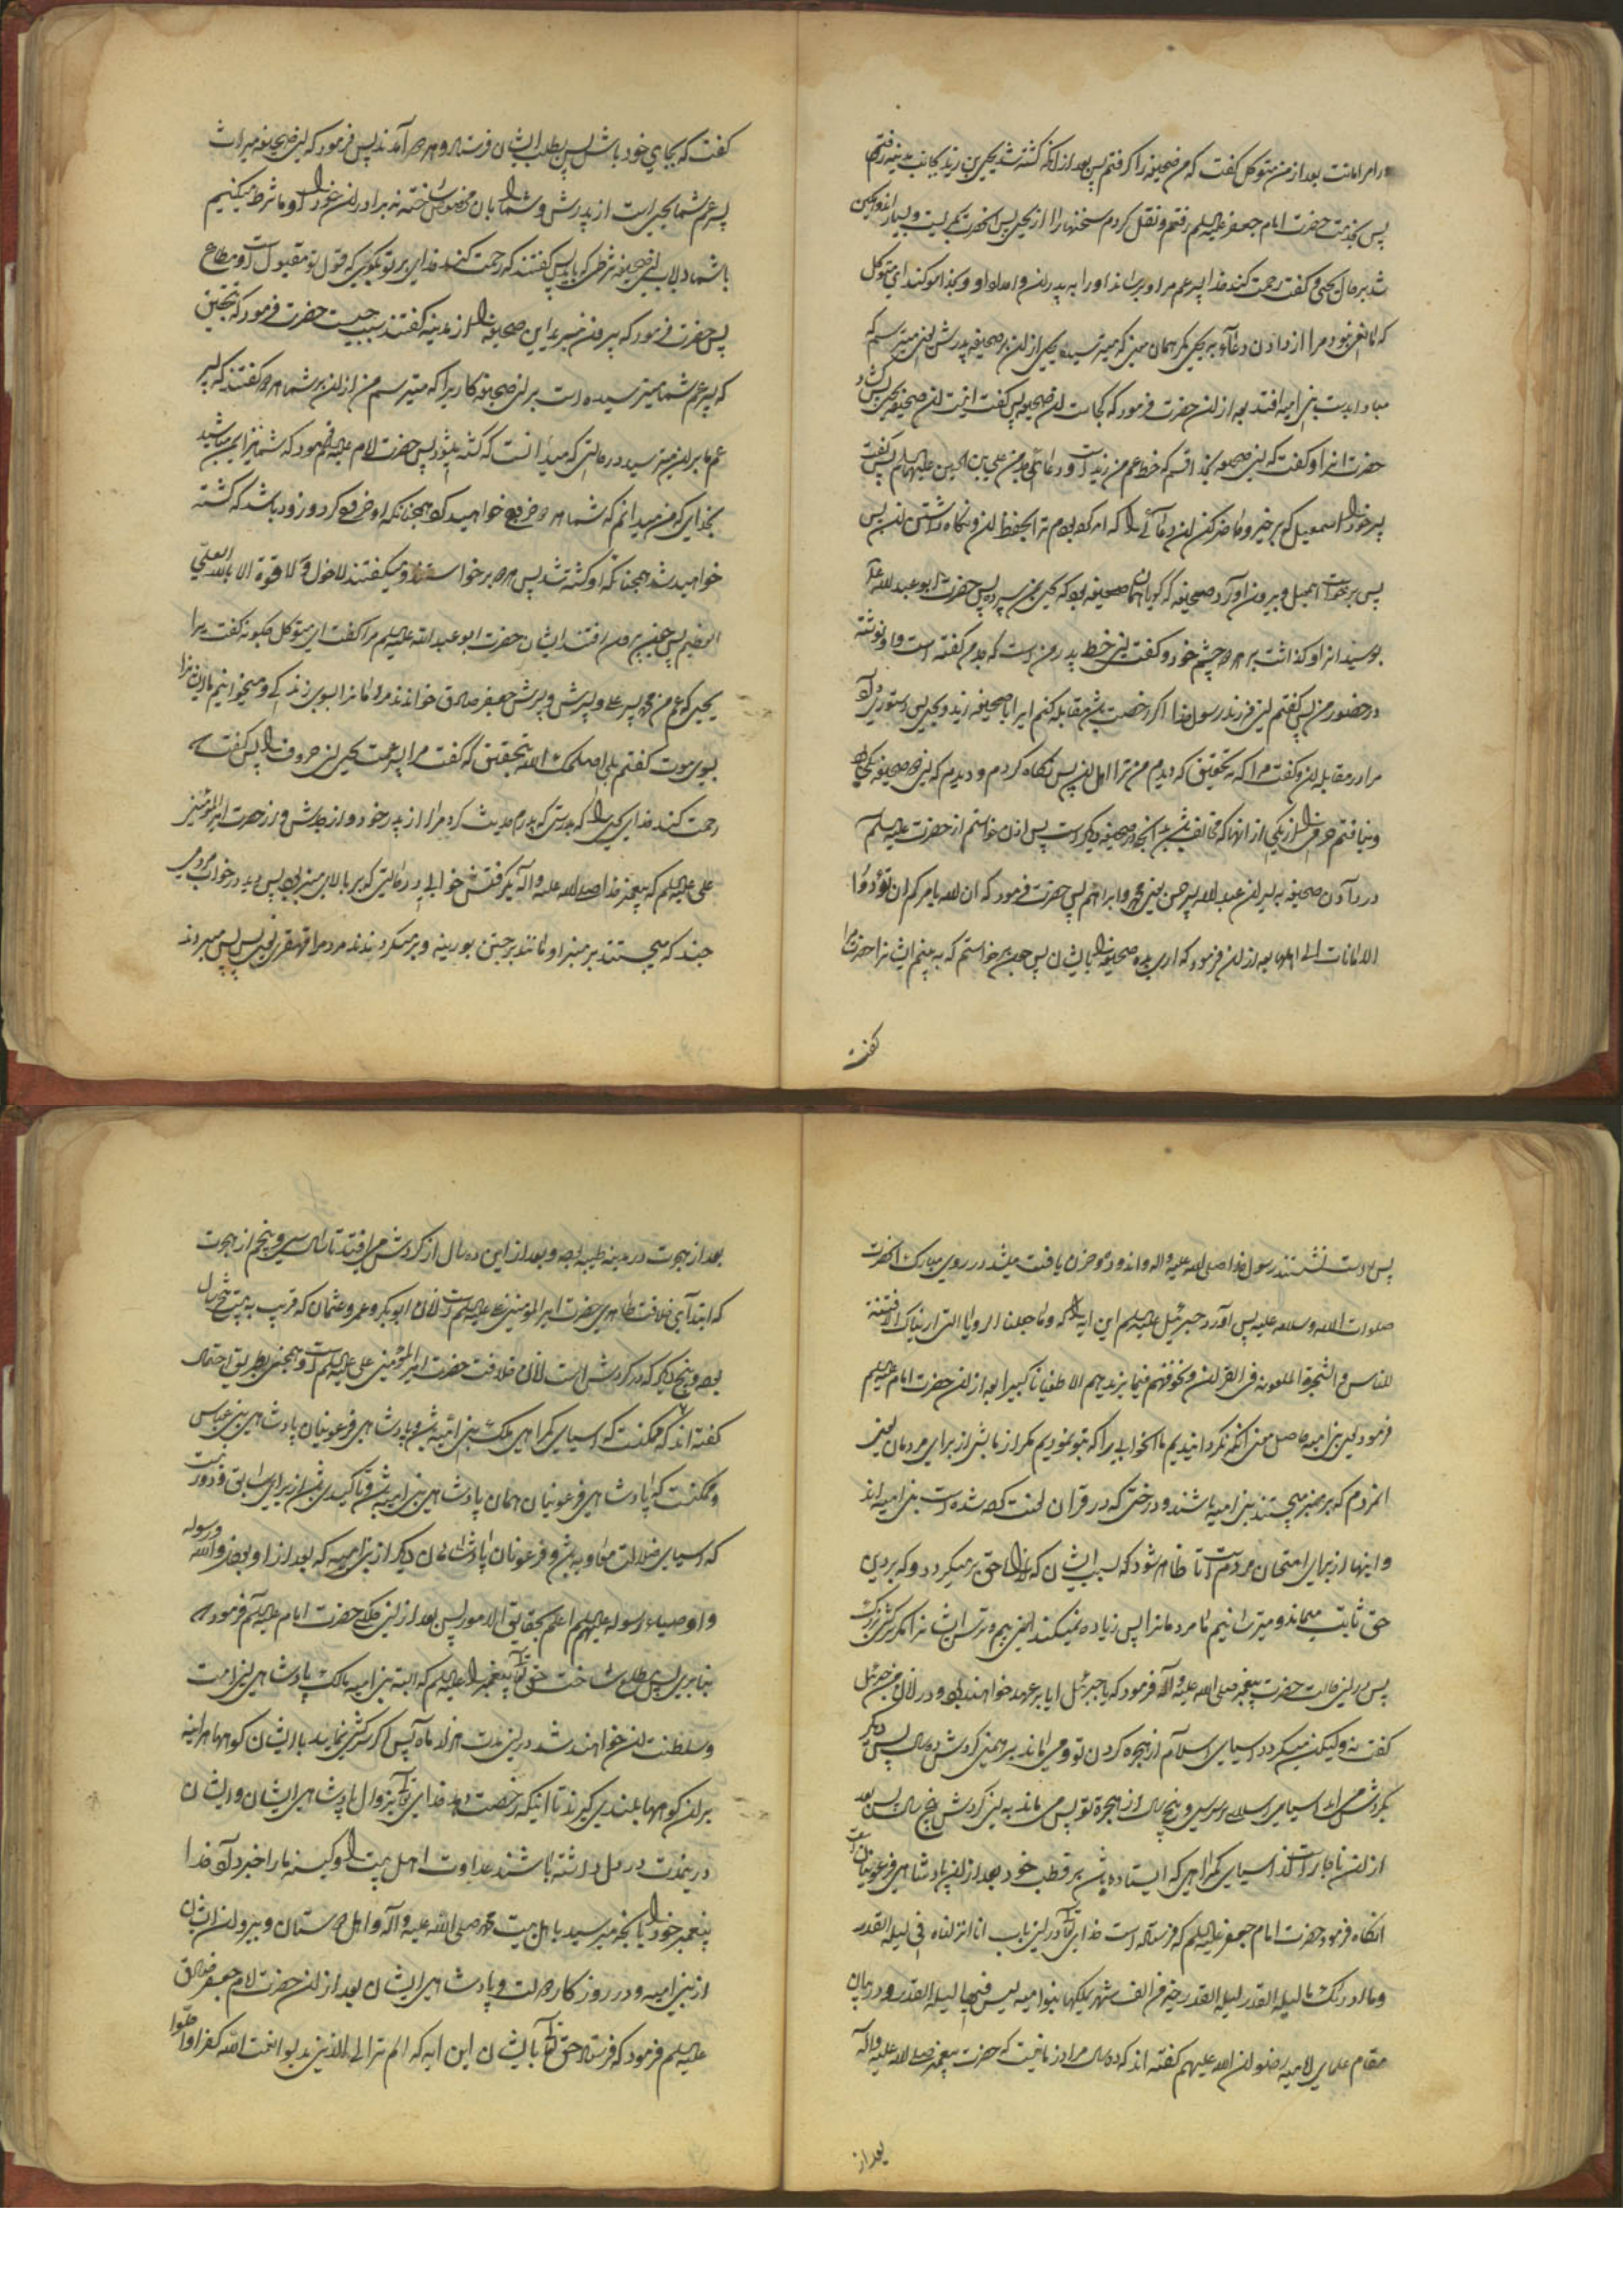 در امر امانت بعد از من متوکل گفت که من صحیفه را گرفتم پس بعد از آنکه کشته شد یحیی بن زید بجانب مدینه رفتم
پس بخدمت حضرت امام جعفر علیه السلام رفتم و نقل کردم سخنها را از یحیی پس آنحضرت بگریست و بسیار اندوهگین
شد بر حال یحیی و گفت رحمت کند خدا پسر عم مرا و برساند او را به پدران و اجداد او و بخدا سوگند ای متوکل
که مانع نبود مرا از دادن دعا به یحیی مگر همان معنی که میترسید یحیی از آن بر صحیفه پدرش یعنی میترسم که
مبادا بدست بنی امیه افتد بعد از آن حضرت فرمود که کجاست آن صحیفه پس گفت اینست آن صحیفه یحیی پس گشاد
حضرت آنرا و گفت که این صحیفه بخدا قسم که خط عم من زید است و دعای جد من علی بن الحسین علیهما السلام پس گفت
پسر خود را اسمعیل که برخیز و حاضر کن آن دعائی را که امر کرده بودم ترا بحفظ آن و نگاه داشتن آن پس
پس برخاست اسمعیل و بیرون آورد صحیفه که گویا همان صحیفه بود که یحیی بمن سپرد پس حضرت ابو عبد الله علیه
بوسید آنرا و گذاشت بر هر دو چشم خود و گفت این خط پدر من است که جدم گفته است و او نوشته
در حضور من پس گفتم این فرزند رسول خدا اگر رخصت باشد مقابله کنم این را با صحیفه زید و یحیی پس دستوری داد
مرا در مقابله آن و گفت مرا که به تحقیق که دیدم من ترا اهل آن پس نگاه کردم و دیدم که این هر دو صحیفه یکی اند
و نیافتم حرفی را از یکی از آنها که مخالف باشد به آنچه در صحیفه دیگر است پس اذن خواستم از حضرت علیه السلم
در دادن صحیفه به پسران عبد الله پسر حسن یعنی محمد و ابراهیم پس حضرت فرمود که ان الله یامرکم ان تؤدوا
الامانات الی اهلها بعد از آن فرمود که اری بده صحیفه را بایشان پس چون برخواستم که به بینم ایشانرا حضرت مرا
گفت
گفت که بجای خود باش پس بطلب ایشان فرستاد و هر دو آمدند پس فرمود که این صحیفه میراث
پسر عم شما یحیی است از پدرش و شما را بآن مخصوص ساخته نه برادران خود را و ما شرط میکنیم
با شما در باب این صحیفه شرطی که باید پس گفتند که رحمت کند خدای بر تو بگوی که قول تو مقبول است و مطاع
پس حضرت فرمود که بیرون مبرید این صحیفه را از مدینه گفتند سبب چیست حضرت فرمود که بتحقیق
که پسر عم شما میترسیده است بر این صحیفه کاری را که میترسم من از آن بر شما هر دو گفتند که پسر
عم ما بر این میترسید در حالتی که میدانست که کشته میشود پس حضرت امام علیه السلام فرمود که شما نیز ایمن مباشید
بخدای که من میدانم که شما هر دو خروج خواهید کرد همچنانکه او خروج کرد و زود باشد که کشته
خواهید شد همچنانکه او کشته شد پس هر دو برخواستند و میگفتند لا حول و لا قوة الا بالله العلی
العظیم پس چون بیرون رفتند ایشان حضرت ابو عبد الله علیه السلام مرا گفت ای متوکل چگونه گفت ترا
یحیی که عم من محمد پسر علی و پسرش جعفر صادق خواندند مردمانرا بسوی زندگی و میخوانیم ما ایشانرا
بسوی موت گفتم بلی اصلحک الله بتحقیق که گفت مرا پسر عمت یحیی این حروف را پس گفت
رحمت کند خدای یحیی را که بدرستی که پدرم حدیث کرد مرا از پدر خود و از جدش و از حضرت امیر المؤمنین
علی علیه السلام که پیغمبر خدا صلی الله علیه و اله بگرفتش خوابی در حالتی که بر بالای منبر بود پس دید در خواب مردمی
چند که میجستند بر منبر او مانند برجستن بوزینه و بر میگردندند مردم را قهقری یعنی پس پس میبردند
پس راست نشستند رسول خدا صلی الله علیه و اله و اندوه و حزن یافت میشد در روی مبارک آنحضرت
صلوات الله و سلامه علیه پس آورد جبرئیل علیه السلم این آیه را که و ما جعلنا الرویا التی اریناک الا فتنة
للناس و الشجرة الملعونة فی القرآن و نخوفهم فما یزیدهم الا طغیانا کبیرا بعد از آن حضرت امام علیه السلم
فرمود یعنی بنی امیه حاصل معنی آنکه نگردانیدیم ما آنخوابی را که بتو نمودیم مگر آزمایش از برای مردمان یعنی
آنمردم که بر منبر میجستند بنی امیه باشند و درختی که در قرآن لعنت کرده شده است بنی امیه اند
و اینها از برای امتحان مردم است تا ظاهر شود که بسبب ایشان که از راه حق بر میگردد و که بر دین
حق ثابت میماند و میترسانیم ما مردمانرا پس زیاده نمیکند این بیم و ترس ایشانرا مگر سرکشی بزرگ
پس در این حالت حضرت پیغمبر صلی الله علیه و آله فرمود که یا جبرئیل ایا بر عهد خواهند بود و در زمان من جبرئیل
گفت نه ولیکن میگردد اسیای اسلام از هجره کردن تو و می ماند بر همین گردش ده سال پس دیگر
بگردش می آید اسیای اسلام بر سر سی و پنج سال از هجرة تو پس می ماند به این گردش پنج سال پس بعد
از آن ناچار است از اسیای گمراهی که ایستاده باشد بر قطب خود بعد از آن پادشاهی فرعونیان است
آنگاه فرمود حضرت امام جعفر علیه السلم که فرستاده است خدای تعالی در این باب انا انزلناه فی لیلة القدر
و ما ادریک ما لیلة القدر لیلة القدر خیر من الف شهر یملکها بنوا امیه لیس فیها لیلة القدر و در بیان
مقام علمای امامیه رضوان الله علیهم گفته اند که ده سال مراد زمانیست که حضرت پیغمبر صلی الله علیه و آله
بعد از
بعد از هجرت در مدینه طیبه بود و بعد از این ده سال از گردش می افتد تا سال سی و پنجم از هجرت
که ابتدای خلافت ظاهری حضرت امیر المؤمنین علی علیه السلم است زمان ابو بکر و عمر و عثمان که قریب به بیست و پنج سال
بود و پنج دیگر که در گردش است زمان خلافت حضرت امیر المؤمنین علی علیه السلم است و همچنین بطریق احتمال
گفته اند که ممکنست که اسیای گمراهی ملک بنی امیه باشد و پادشاهی فرعونیان پادشاهی بنی عباس
و ممکنست که پادشاهی فرعونیان همان پادشاهی بنی امیه باشد و تاکیدی باشد از برای سابق و دور نیست
که اسیای ضلالت معاویه باشد و فرعونیان پادشاهان دیگر از بنی امیه که بعد از او بودند و الله و رسوله
و اوصیاء رسوله علیهم السلم اعلم بحقایق الامور پس بعد از این حکایت حضرت امام علیه السلم فرمود که
بنا برین پس مطلع ساخت حق تعالی پیغمبر را علیه السلم که البته بنی امیه مالک پادشاهی این امت
و سلطنت آن خواهند شد در این مدت هزار ماه پس اگر سرکشی نمایند با ایشان کوهها هر آینه
بر آن کوهها بلندی گیرند تا اینکه رخصت دهد خدای تعالی بزوال پادشاهی ایشان و ایشان
در مدت در دل داشته باشند عداوت اهل بیت را و کینه ما را خبر داد خدا
پیغمبر خود را بآنچه میرسید باهل بیت محمد صلی الله علیه و آله و اهل دوستان و پیروان ایشان
از بنی امیه و در روزگار دولت و پادشاهی ایشان بعد از آن حضرت امام جعفر صادق
علیه السلم فرمود که فرستاد حق تعالی بایشان این آیه که الم تر الی الذین بدلوا نعمت الله کفرا و احلوا